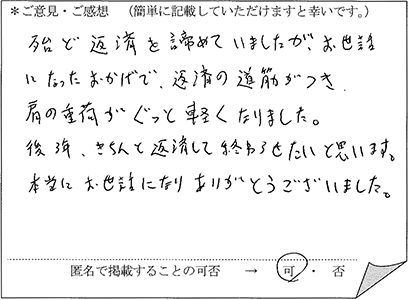 ＊ご意見・ご感想　（簡単に記載していただけますと幸いです。）
殆ど返済を諦めていましたが、お世話
になったおかげで、返済の道筋がつき、
肩の重荷がぐっと軽くなりました。
後3年、きちんと返済して終わらせたいと思います。
本当にお世話になりありがとうございました。
匿名で掲載することの可否　→　可・否